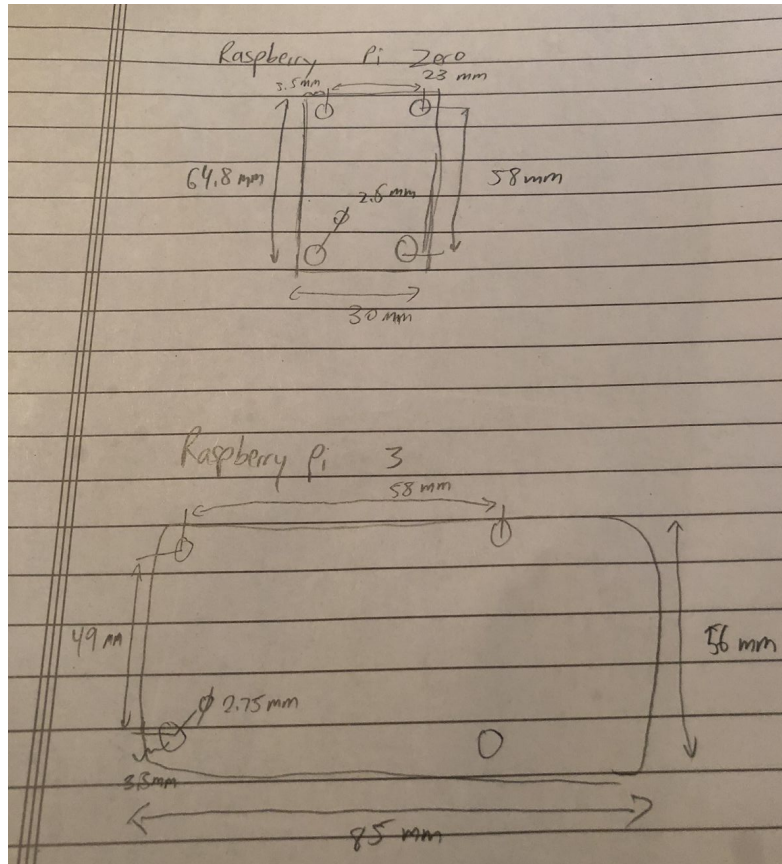 Raspberry Pi Zero
3.5mm
23 mm
64.8mm
58mm
φ 2.6mm
30mm
Raspberry Pi 3
58 mm
49 mm
56 mm
φ 2.75 mm
3.5mm
85 mm